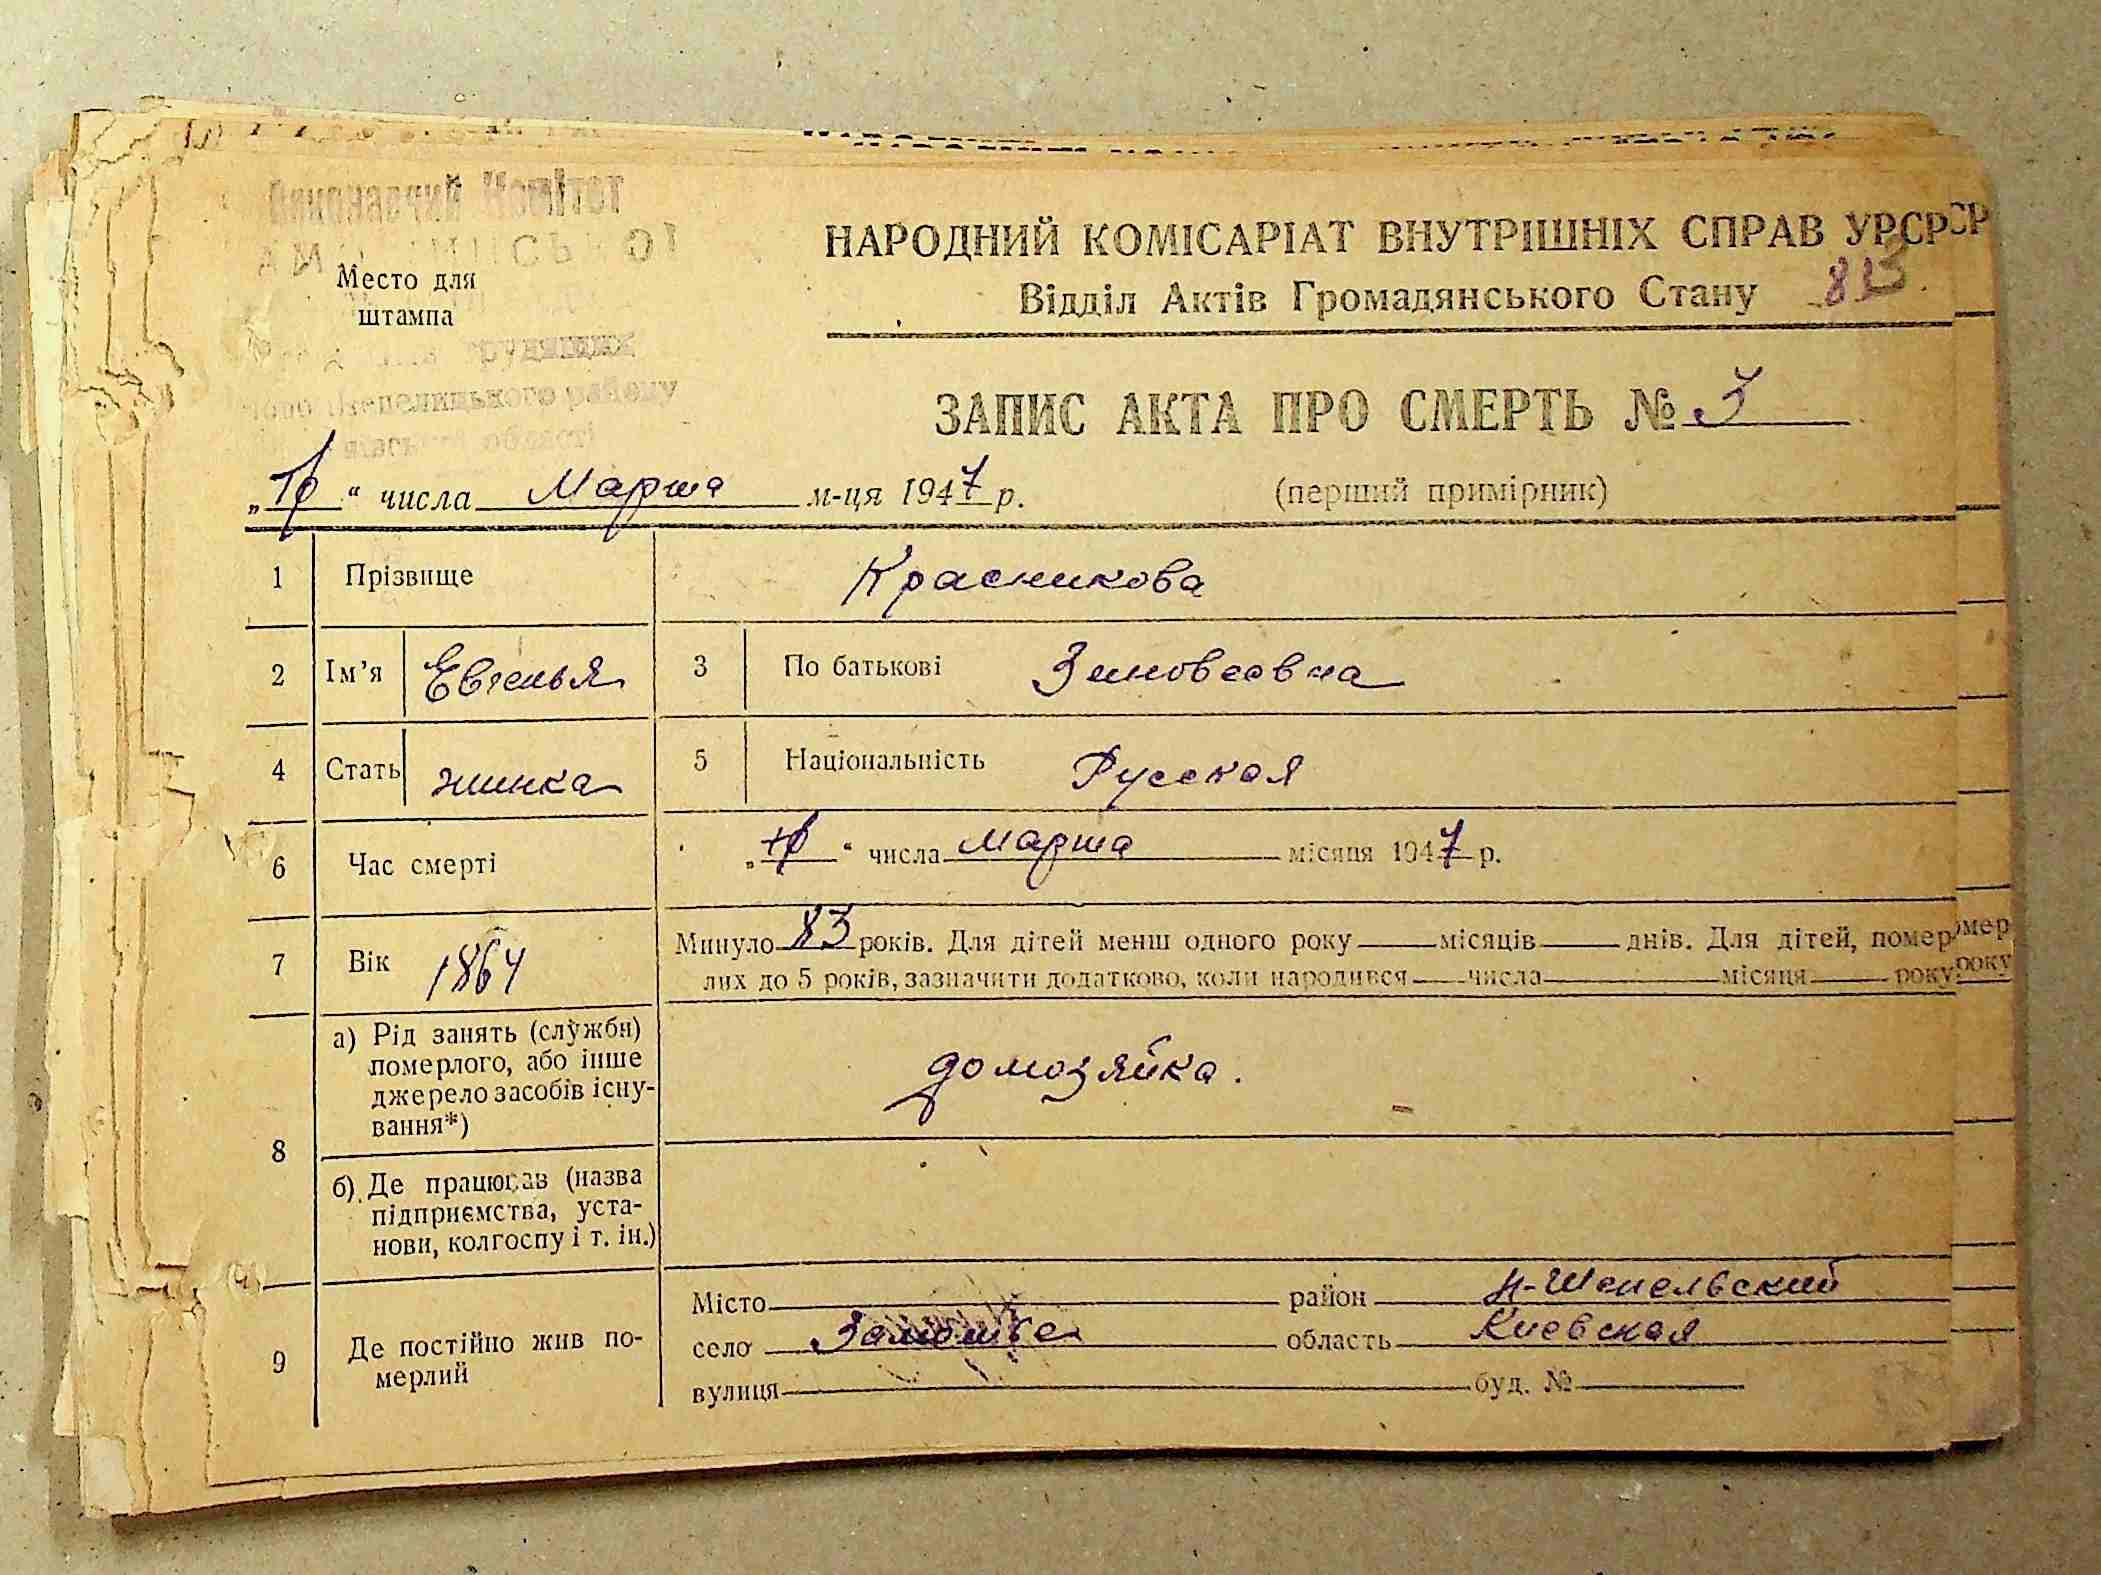 Виконавчий Комітет
Место для
штампа
трудящих
Ново Шепелицького району
області
НАРОДНИЙ КОМІСАРІАТ ВНУТРІШНІХ СПРАВ УРСР
Відділ Актів Громадянського Стану
ЗАПИС АКТА ПРО СМЕРТЬ № 3
(перший примірник)
" " числа Марта м-ця 1947 р.
1 Прізвище Красникова
2 Ім'я Евгенья 3 По батькові Зиновеевна
4 Стать жинка 5 Національність Русская
6 Час смерті " " числа марта місяця 1947 р.
7 Вік 1864 Минуло 83 років. Для дітей менш одного року місяців днів. Для дітей, помер-
лих до 5 років, зазначити додатково, коли народився числа місяця року
8 а) Рід занять (служби)
померлого, або інше
джерело засобів існу-
вання*)
домозяйка.
б) Де працював (назва
підприємства, уста-
нови, колгоспу і т. ін.)
9 Де постійно жив по-
мерлий
Місто район Н-Шепельский
село область Киевская
вулиця буд. №